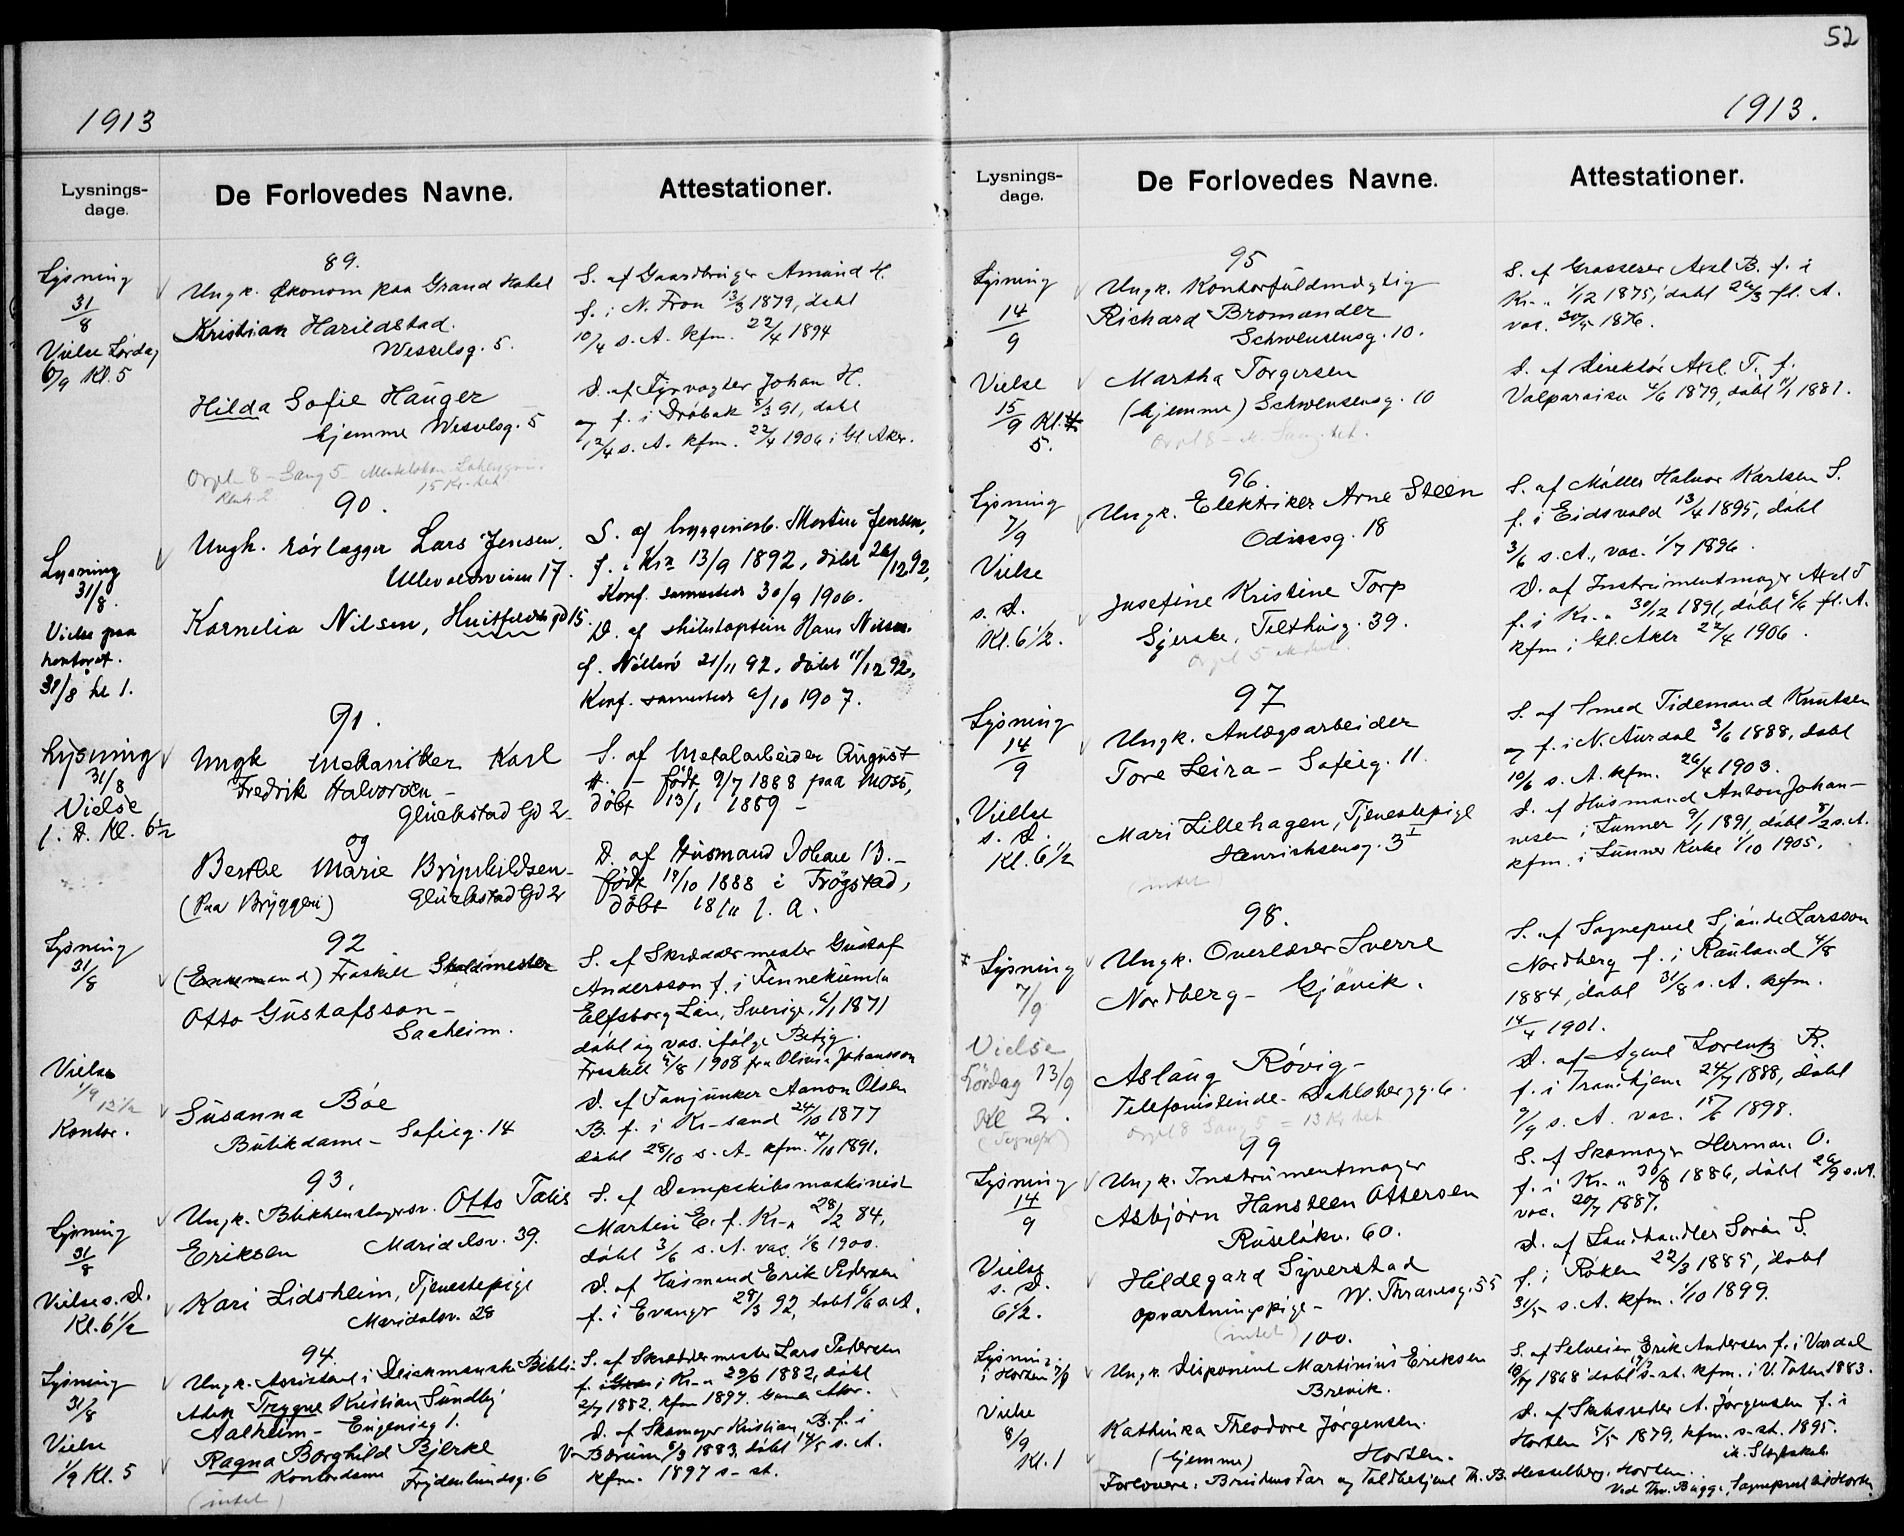 52
1913
Lysnings-
dage.
De Forlovedes Navne.
Attestationer.
Lysning
31/8
Vielse Lørdag
6/9 Kl. 5
89.
Ungk. Økonom paa Grand Hotel
Kristian Harildstad.
Wesselsg. 5.
Hilda Sofie Hauger
hjemme Wesselsg. 5
S. af Gaardbruger Amund H.
f. i N. Fron 13/3 1879, døbt
10/4 s. A. kfm. 22/4 1894
D. af Fyrvogter Johan H.
f. i Drøbak 8/3 91, døbt
12/4 s. A. kfm. 22/4 1906 i Gl. Aker.
Lysning
31/8.
Vielse paa
kontoret.
31/8 kl 1.
90.
Ungk. rørlægger Lars Jensen.
Ullevoldsveien 17.
Kornelia Nilsen, Huitfeldts gd 15.
S. af bryggeriarb. Martin Jensen,
f. i Kra 13/9 1892, døbt 26/12 92,
Konf. samesteds 30/9 1906.
D. af skibskaptein Hans Nilsen.
f. Nøtterø 21/11 92. døbt 11/12 92,
Konf. samesteds 6/10 1907.
Lysning
31/8
Vielse
s. D. Kl. 6 1/2
91.
Ungk Mekaniker Karl
Fredrik Halvorsen -
Glückstad Gd 2
og
Berthe Marie Brynhildsen-
(Paa Bryggeri) Glückstad Gd 2
S. af Metalarbeider August
H. - født 9/7 1888 paa Moss,
døbt 13/1 1889 -
D. af Husmand Johan B. -
født 19/10 1888 i Trøgstad,
døbt 18/11 s. A.
Lysning
31/8
Vielse
1/9 12 1/2
Kontor.
92
(Enkemand) Fraskilt
Otto Gustafsson -
Saaheim.
Susanna Bøe
Butikdame - Sofieg. 14
S. af Skræddermester Gustaf
Andersson f. i Finnekumla
Elfsborg Län, Sverige, 6/1 1871
døbt og vac. ifølge Betyg.
Fraskilt 5/8 1908 fra Olivia Johansson
D. af Fanjunker Aanon Olsen
B. f. i Kr-sand 24/10 1877
døbt 28/10 s. A. kfm. 4/10 1891.
Lysning
31/8
Vielse s. D.
Kl. 6 1/2
93.
Ungk. Blikkenslagersv. Otto
Eriksen Maridalsv. 39.
Kari Lidsheim, Tjenestepige
Maridalsv. 28
S. af Dampskibsmaskinist
Martin E. f. Kr-a 28/2 84,
døbt 3/6 s. A. vac. 1/6 1900.
D. af Husmand Erik Pedersen
f. i Evanger 28/3 92, døbt 6/6 s. A.
Lysning
31/8
Vielse
1/9 Kl. 5
94.
Ungk. Assistent i Deichmanske Bibli.
Trygve Kristian Sundby
Aalheim - Eugeniag 1.
Ragna Borghild Bjerke
Kontordame Frydenlundsg. 6
(intet)
S. af Skræddermester Lars Pedersen
f. i Kr-a 29/6 1882, døbt
2/7 1882. kfm 1897. Gamle Aker.
D. af Skomager Kristian B. f. i
V- Bærum 6/3 1883, døbt 14/5 s. A.
kfm. 1897 s- st.
1913.
Lysnings-
dage.
De Forlovedes Navne.
Attestationer.
Lysning
14/9
Vielse
15/9 Kl.
5.
95
Ungk. Kontorfuldmægtig
Richard Bromander
Schwensensg. 10.
Martha Torgersen
(hjemme) Schwensensg. 10
S. af Grosserer Axel B. f. i
Kr-a 1/12 1875, døbt 26/3 fl. A.
vac. 30/5 1876.
D. af Direktør Axel T. f.
Valparaiso 4/6 1879, døbt 4/1 1881.
Lysning
7/9
Vielse
s. D.
Kl. 6 1/2.
96.
Ungk. Elektriker Arne Steen
Odinsg. 18
Josefine Kristine Torp
Syerske, Tilthusg. 39.
S. af Møller Halvor Karlsen S.
f. i Eidsvold 13/4 1895, døbt
3/6 s. A., vac. 1/7 1896.
D. af Instrumentmager Axel T
f. i Kr.-a 30/12 1891, døbt 6/6 fl. A.
kfm i Gl. Aker 22/4 1906.
Lysning
14/9
Vielse
s. D.
Kl. 6 1/2
97
Ungk. Anlægsarbeider
Tore Leira - Sofieg. 11.
Mari Lillehagen, Tjenestepige
Henrichsensg. 3 I
(intet
S. af Smed Tidemand Knutsen
f. i N. Aurdal 3/6 1888, døbt
10/6 s. A. kfm. 26/4 1903.
D. af Husmand Anton Johan-
nesen i Lunner 9/1 1891, døbt 8/2 s. A.
kfm. i Lunner Kirke 1/10 1905.
Lysning
7/9
Vielse
Lørdag 13/9
Kl 2.
98.
Ungk. Overlærer Sverre
Nordberg - Gjøvik.
Aslaug Røvig -
Telefonistinde - Dahlsbergg. 6.
S. af Sogneprest Sjønde Larsson
Nordberg f. i Rauland 4/8
1884, døbt 31/8 s. A. kfm.
14/4 1901.
D. af Agent Lorentz R.
f. i Trondhjem 24/7 1888, døbt
9/9 s. A. vac. 15/6 1898.
Lysning
14/9
Vielse
s. D.
6 1/2.
99
Ungk. Instrumentmager
Asbjørn Hansteen Ottersen
Ruseløkv. 60.
Hildegard Syverstad
opvartningspige - W. Thranesg. 55
(intet)
S. af Skomager Herman O.
f. i Kr.-a 30/8 1886, døbt 26/9 s. A.
vac. 20/7 1887.
D. af Landhandler Søren S.
f. i Røken 22/3 1885, døbt
31/5 s. A. kfm. 1/10 1899.
Lysning
i Horten 7/9
Vielse
8/9
Kl. 1
100.
Ungk. Disponent Martinius Eriksen
Brevik.
Kathinka Theodore Jørgensen.
(hjemme) Horten.
S. af Selveier Erik Andersen f. i Vardal
1868 døbt s- st. kfm. i V. Toten 1883.
D. af A. Jørgensen f. i
Horten 5/5 1879, kfm. s- st. 1895.
ik. Slægtskab.
Forlovere: Brudens Far og Toldbetjent Th. B. Hesselberg, Horten.
Ved Thv. Bugge, Sogneprest til Horten